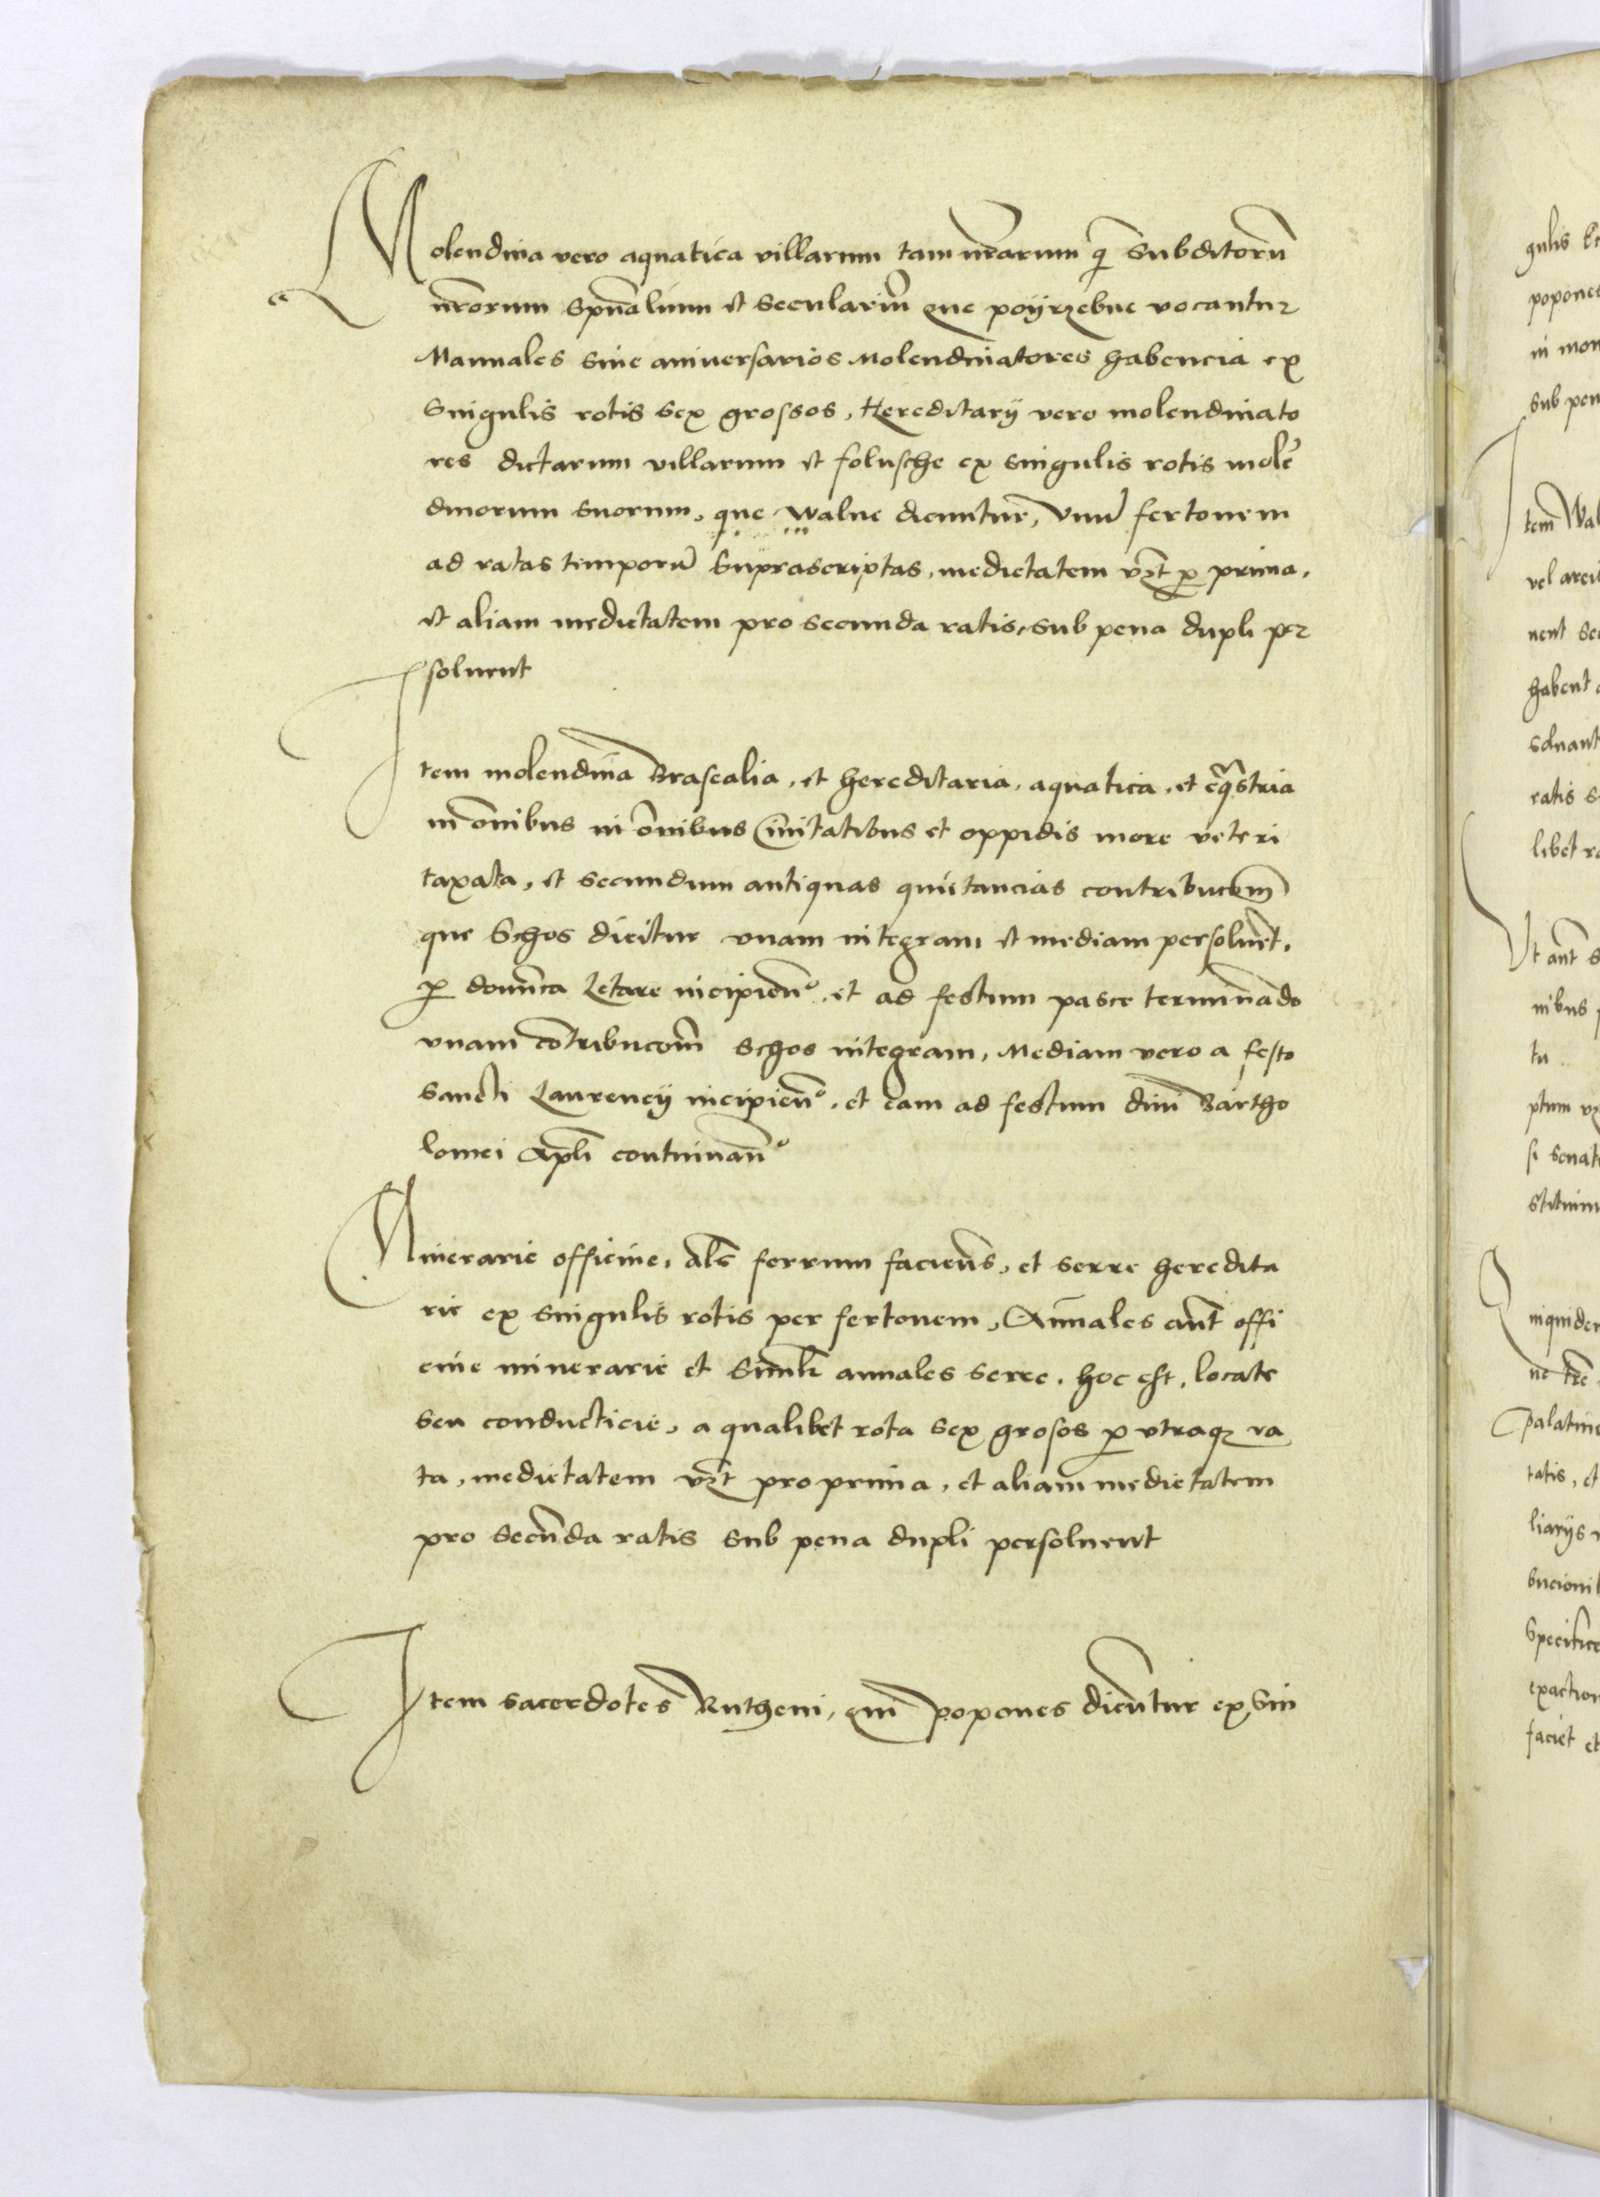 Molendina vero aquatica villarum tam nr̃arum q̃ subditorũ
nr̃orum spũalium et seculariũ que poijrzebne vocantur
Mannales sive aniversarios Molendinatores habencia ex
singulis rotis sex grossos, Hereditarij vero molendinato
res dictarum villarum et folusche ex singulis rotis molẽ
dinorum suorum, que walne dicuntur, vnũ fertonem
ad ratas temporũ suprascriptas, medietatem vzt p prima,
et aliam medietatem pro secunda ratis, sub pena dupli per
soluent
Item molendina Brasealia, et hereditaria, aquatica, et eq̃stria
in õnibus in õnibus Ciuitatibus et oppidis more veteri
taxata, et secundum antiquas quietancias contribucem̃
que Schos dicitur vnam integram et mediam persoluẽt,
p domĩca Letare incipieñ, et ad festum pasce terminãdo
vnam cõtribucom̃ schos integram, Mediam vero a festo
sancti Laurencij incipieñ, et eam ad festum diui Bartho
lomei Apl̃i continuañ
Minerarie officine, al̃s ferrum facieñs, et serre heredita
rie ex singulis rotis per fertonem, Annales aũt offi
cine minerarie et simil̃r annales serre, hoc est, locate
seu conducticie, a qualibet rota sex grosos p vtraq ra
ta, medietatem vzt pro prima, et aliam medietatem
pro secũda ratis sub pena dupli persoluent
Item sacerdotes Rutheni, qui popones dicũtur ex sin
gulis
popones
in mon
sub pen
tem Wal
nent se
habent
soluant
ratis s
libet ra
Vt aũt s
nibus
tu
ptum
si senat
stituim
Palatin
tatis, et
liarijs
bucioni
exaction
faciet et